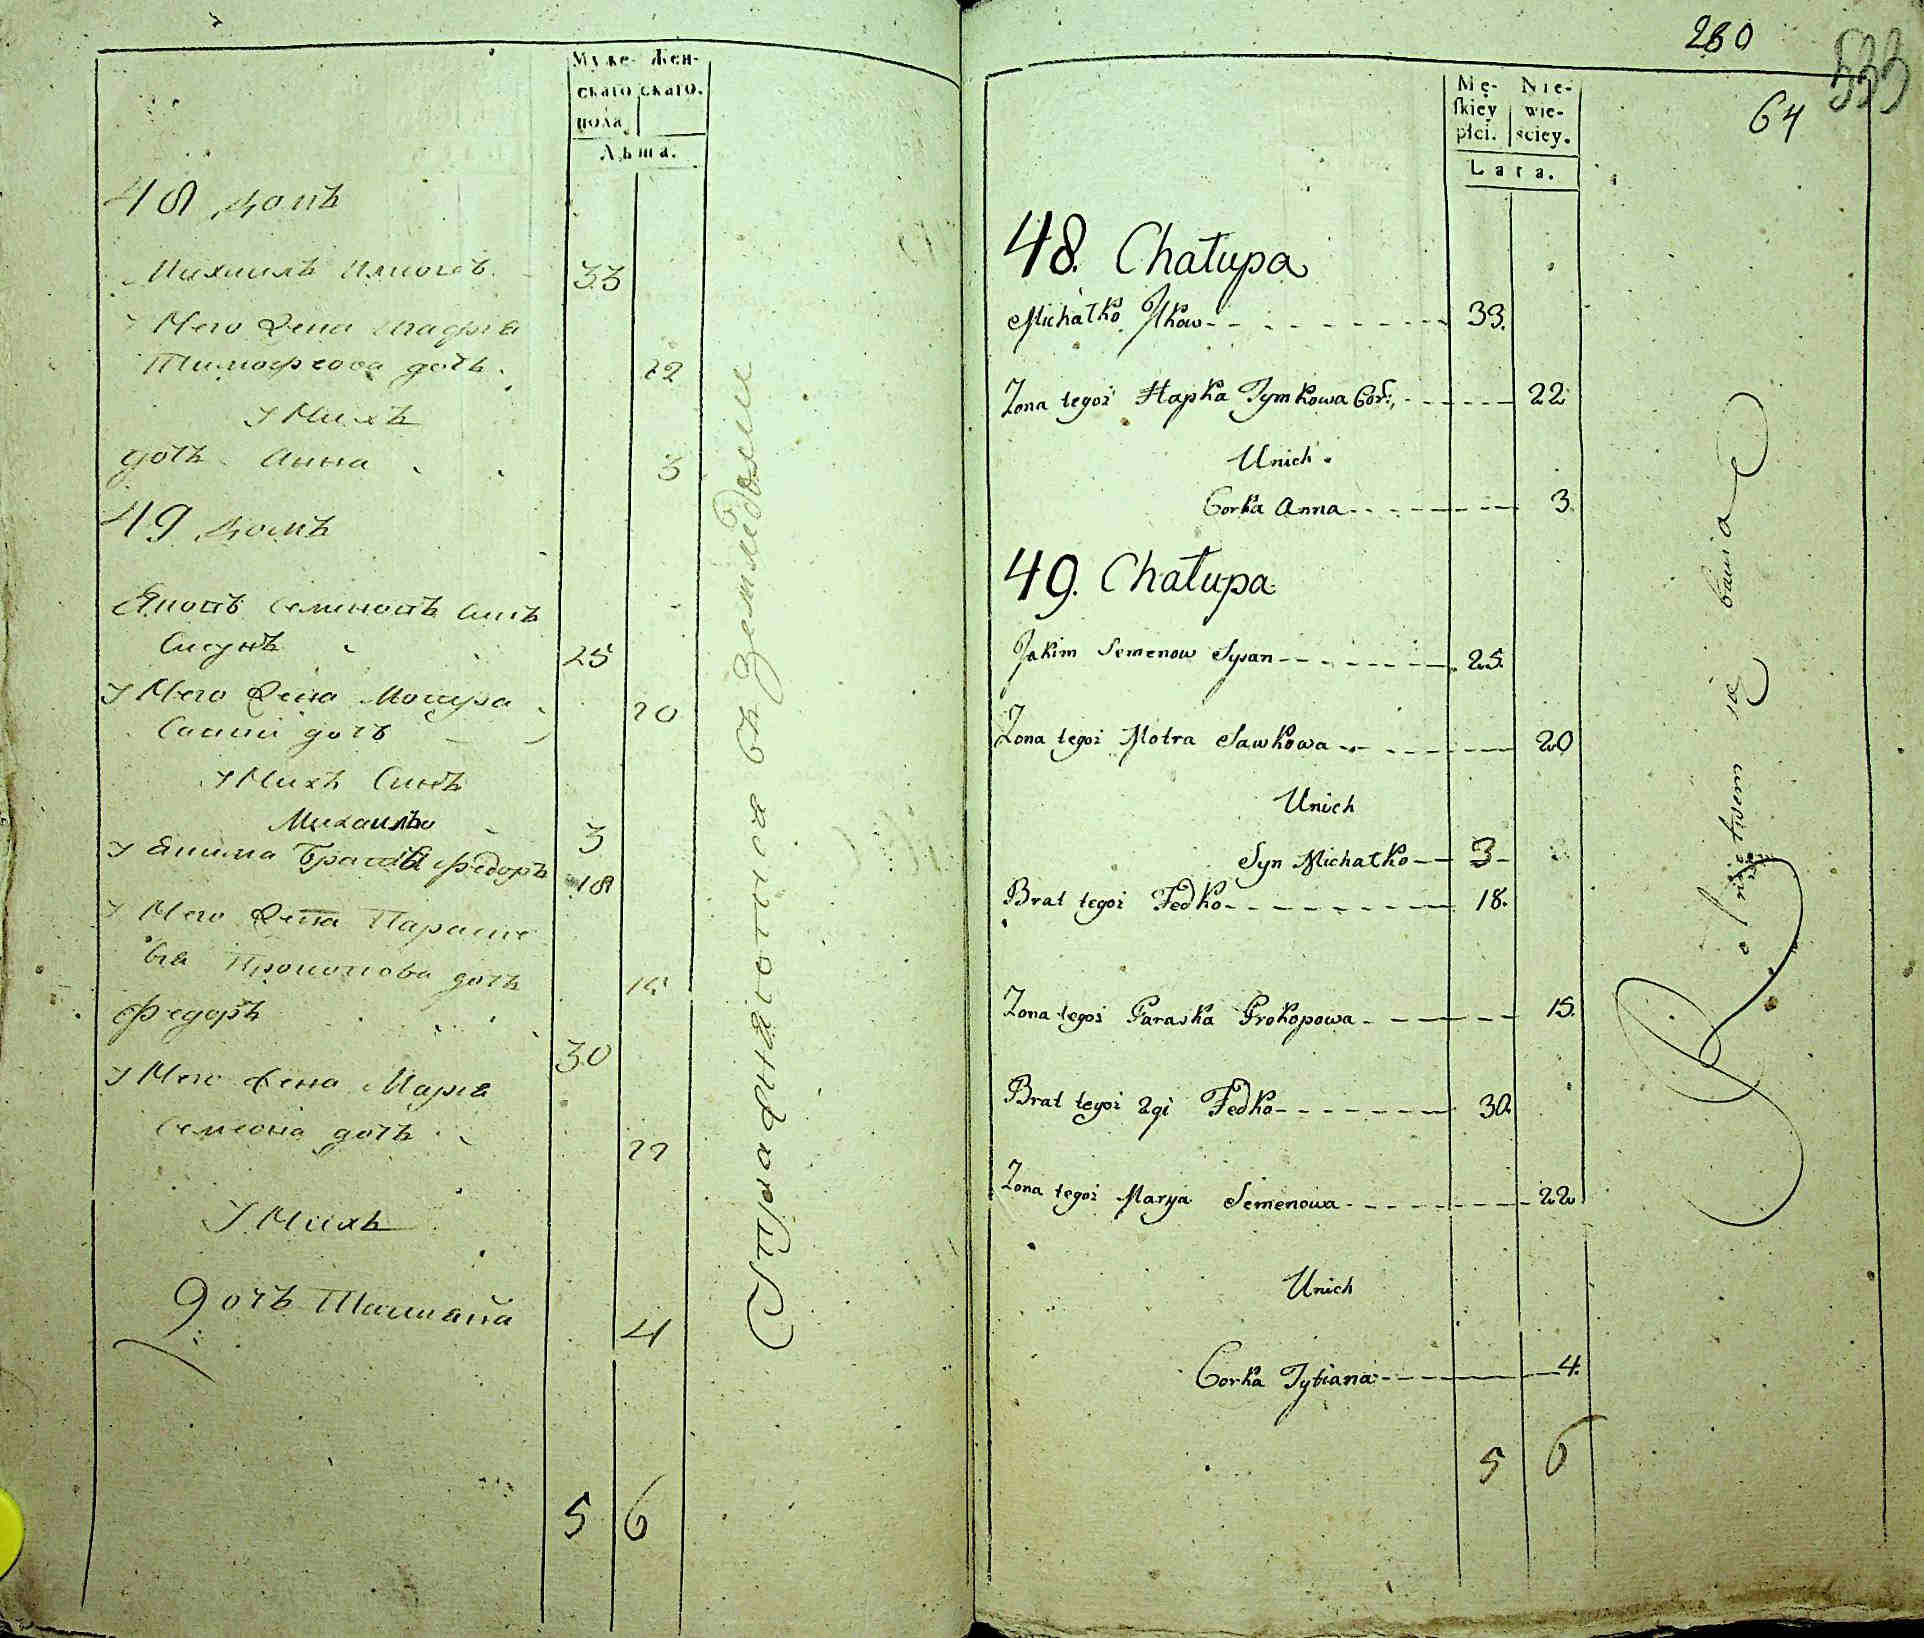 Муже- Жен-
скаго скаго.
пола
Лѣта.
48 домъ
Михаилъ 33
У Него Жена Агафия
Тимофеова дочь. 22
У Нихъ
дочь Анна 3
49 домъ
Якимъ Семеновъ Синъ
Сисунъ 25
У Него Жена Мотра
Савки дочь 20
У Нихъ Синъ
Михаило 3
У Якима Братъ Федоръ 18
У Него Жена Параске
вія Прокопова дочь 15
Федоръ 30
У Него Жена Марія
Семеона дочь 22
У Нихъ
дочь Татиана 4
5 6
Упражняються въ Земледелии
280
533
64
Mę- Nie-
skiey wie-
płci. sciey.
Lata.
48. Chałupa
Michałko Ilkow 33.
Zona tegoż Hapka Tymkowa Cor:, 22
Unich
Corka Anna 3
49. Chałupa
Jakim Semenow Sysan 25.
Zona tegoż Motra Sawkowa 20
Unich
Syn Michałko 3
Brat tegoż Fedko 18.
Zona tegoż Paraska Prokopowa 15.
Brat tegoż 2gi Fedko 30
Zona tegoż Marya Semenowa 22
Unich
Corka Tytiana 4.
5 6
Rolnictwem się bawią